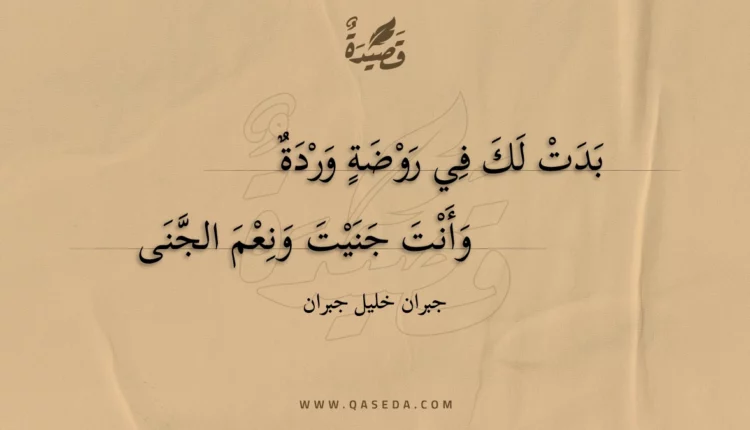 قَصِيدَةٌ
بَدَتْ لَكَ فِي رَوْضَةٍ وَرْدَةٌ
وَأَنْتَ جَنَيْتَ وَنِعْمَ الجَّنَى
جبران خليل جبران
WWW.QASEDA.COM